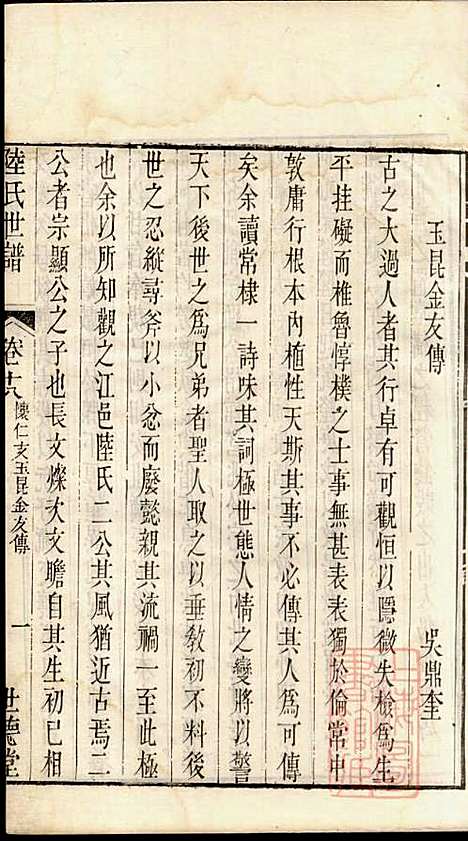 玉昆金友傳
吳鼎奎
古之大過人者其行卓有可觀恒以隱微失檢爲生
平挂礙而椎魯惇樸之士事無甚表表獨於倫常中
敦庸行根本內植性天斯其事不必傳其人爲可傳
矣余讀常棣一詩味其詞極世態人情之變將以警
天下後世之爲兄弟者聖人取之以垂敎初不料後
世之忍縱尋斧以小忿而廢懿親其流禍一至此極
也余以所知觀之江邑陸氏二公其風猶近古焉二
公者宗顯公之子也長文燦次文瞻自其生初已相
陸氏世譜
卷十八
懷仁支玉昆金友傳
一
世德堂